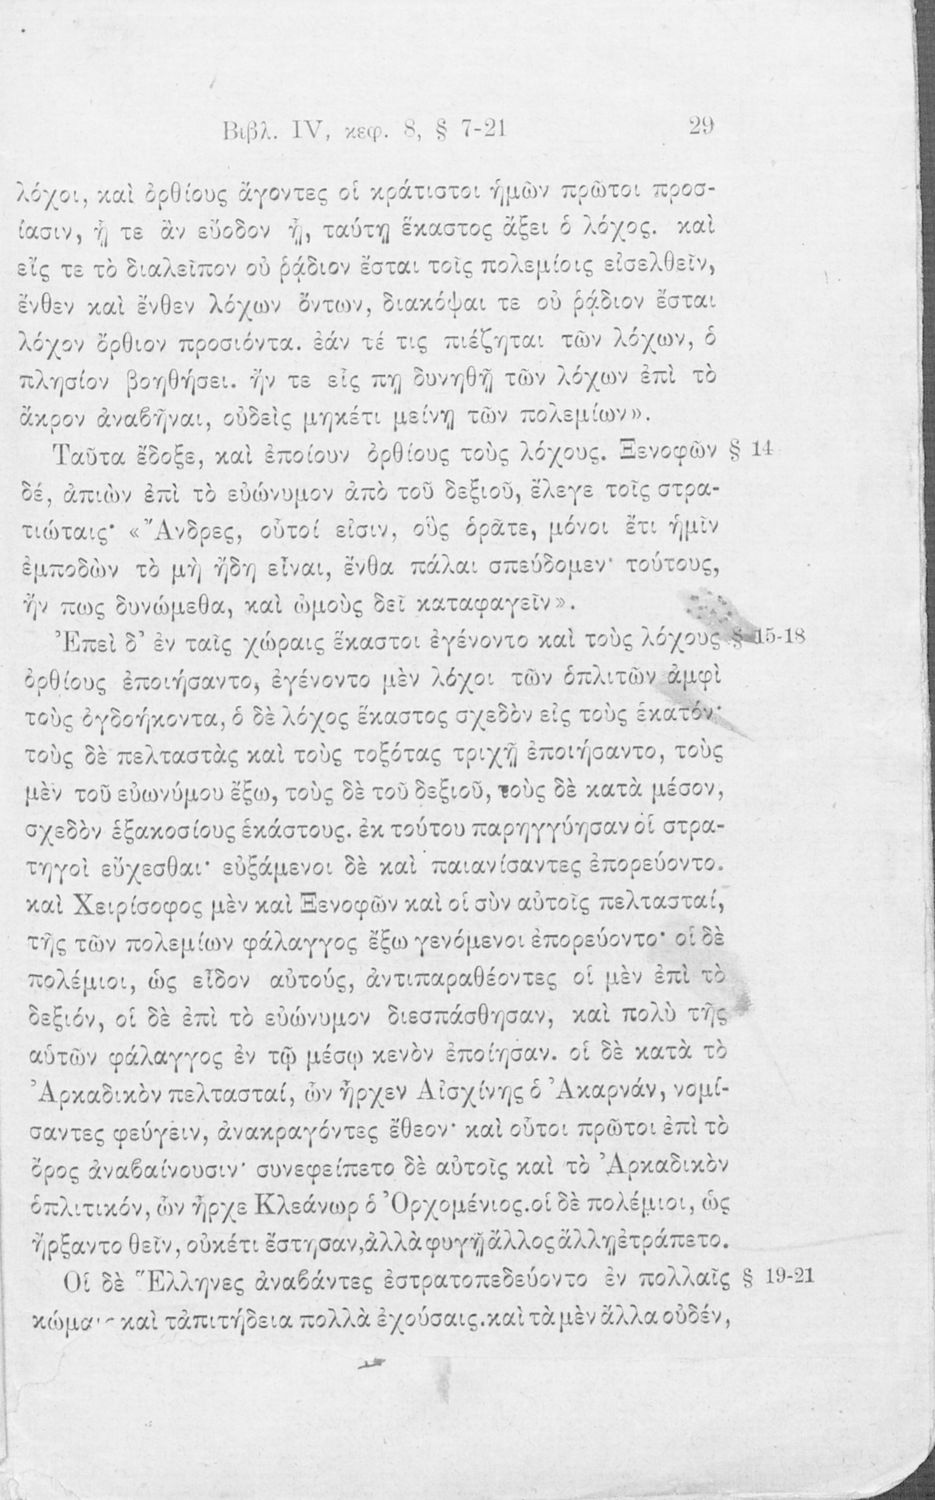 Βιβλ. IV, κεφ. 8, § 7-21 29
λόχοι, καὶ ὀρθίους ἄγοντες οἱ κράτιστοι ἡμῶν πρῶτοι προσ-
ίασιν, ᾗ τε ἂν εὔοδον ᾖ, ταύτῃ ἕκαστος ἄξει ὁ λόχος. καὶ
εἴς τε τὸ διαλεῖπον οὐ ῥᾴδιον ἔσται τοῖς πολεμίοις εἰσελθεῖν,
ἔνθεν καὶ ἔνθεν λόχων ὄντων, διακόψαι τε οὐ ῥᾴδιον ἔσται
λόχον ὄρθιον προσιόντα. ἐάν τέ τις πιέζηται τῶν λόχων, ὁ
πλησίον βοηθήσει. ἤν τε εἷς πῃ δυνηθῇ τῶν λόχων ἐπὶ τὸ
ἄκρον ἀναβῆναι, οὐδεὶς μηκέτι μείνῃ τῶν πολεμίων».
Ταῦτα ἔδοξε, καὶ ἐποίουν ὀρθίους τοὺς λόχους. Ξενοφῶν § 14
δέ, ἀπιὼν ἐπὶ τὸ εὐώνυμον ἀπὸ τοῦ δεξιοῦ, ἔλεγε τοῖς στρα-
τιώταις· «Ἄνδρες, οὗτοί εἰσιν, οὓς ὁρᾶτε, μόνοι ἔτι ἡμῖν
ἐμποδὼν τὸ μὴ ἤδη εἶναι, ἔνθα πάλαι σπεύδομεν· τούτους,
ἤν πως δυνώμεθα, καὶ ὠμοὺς δεῖ καταφαγεῖν».
Ἐπεὶ δ’ ἐν ταῖς χώραις ἕκαστοι ἐγένοντο καὶ τοὺς λόχους § 15-18
ὀρθίους ἐποιήσαντο, ἐγένοντο μὲν λόχοι τῶν ὁπλιτῶν ἀμφὶ
τοὺς ὀγδοήκοντα, ὁ δὲ λόχος ἕκαστος σχεδὸν εἰς τοὺς ἑκατόν·
τοὺς δὲ πελταστὰς καὶ τοὺς τοξότας τριχῇ ἐποιήσαντο, τοὺς
μὲν τοῦ εὐωνύμου ἔξω, τοὺς δὲ τοῦ δεξιοῦ, τοὺς δὲ κατὰ μέσον,
σχεδὸν ἑξακοσίους ἑκάστους. ἐκ τούτου παρηγγύησαν οἱ στρα-
τηγοὶ εὔχεσθαι· εὐξάμενοι δὲ καὶ παιανίσαντες ἐπορεύοντο.
καὶ Χειρίσοφος μὲν καὶ Ξενοφῶν καὶ οἱ σὺν αὐτοῖς πελτασταί,
τῆς τῶν πολεμίων φάλαγγος ἔξω γενόμενοι ἐπορεύοντο· οἱ δὲ
πολέμιοι, ὡς εἶδον αὐτούς, ἀντιπαραθέοντες οἱ μὲν ἐπὶ τὸ
δεξιόν, οἱ δὲ ἐπὶ τὸ εὐώνυμον διεσπάσθησαν, καὶ πολὺ τῆς
αὑτῶν φάλαγγος ἐν τῷ μέσῳ κενὸν ἐποίησαν. οἱ δὲ κατὰ τὸ
Ἀρκαδικὸν πελτασταί, ὧν ἦρχεν Αἰσχίνης ὁ Ἀκαρνάν, νομί-
σαντες φεύγειν, ἀνακραγόντες ἔθεον· καὶ οὗτοι πρῶτοι ἐπὶ τὸ
ὄρος ἀναβαίνουσιν· συνεφείπετο δὲ αὐτοῖς καὶ τὸ Ἀρκαδικὸν
ὁπλιτικόν, ὧν ἦρχε Κλεάνωρ ὁ Ὀρχομένιος. οἱ δὲ πολέμιοι, ὡς
ἤρξαντο θεῖν, οὐκέτι ἔστησαν, ἀλλὰ φυγῇ ἄλλος ἄλλῃ ἐτράπετο.
Οἱ δὲ Ἕλληνες ἀναβάντες ἐστρατοπεδεύοντο ἐν πολλαῖς § 19-21
καὶ τἀπιτήδεια πολλὰ ἐχούσαις. καὶ τὰ μὲν ἄλλα οὐδέν,